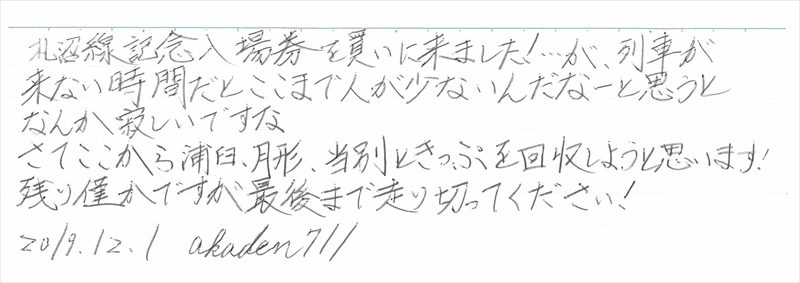 札沼線記念入場券を買いに来ました!…が、列車が
来ない時間だとここまで人が少ないんだなーと思うと
なんか寂しいですな
さてここから浦臼、月形、当別ときっぷを回収しようと思います!
残り僅かですが最後まで走り切ってください!
2019.12.1 akaden711